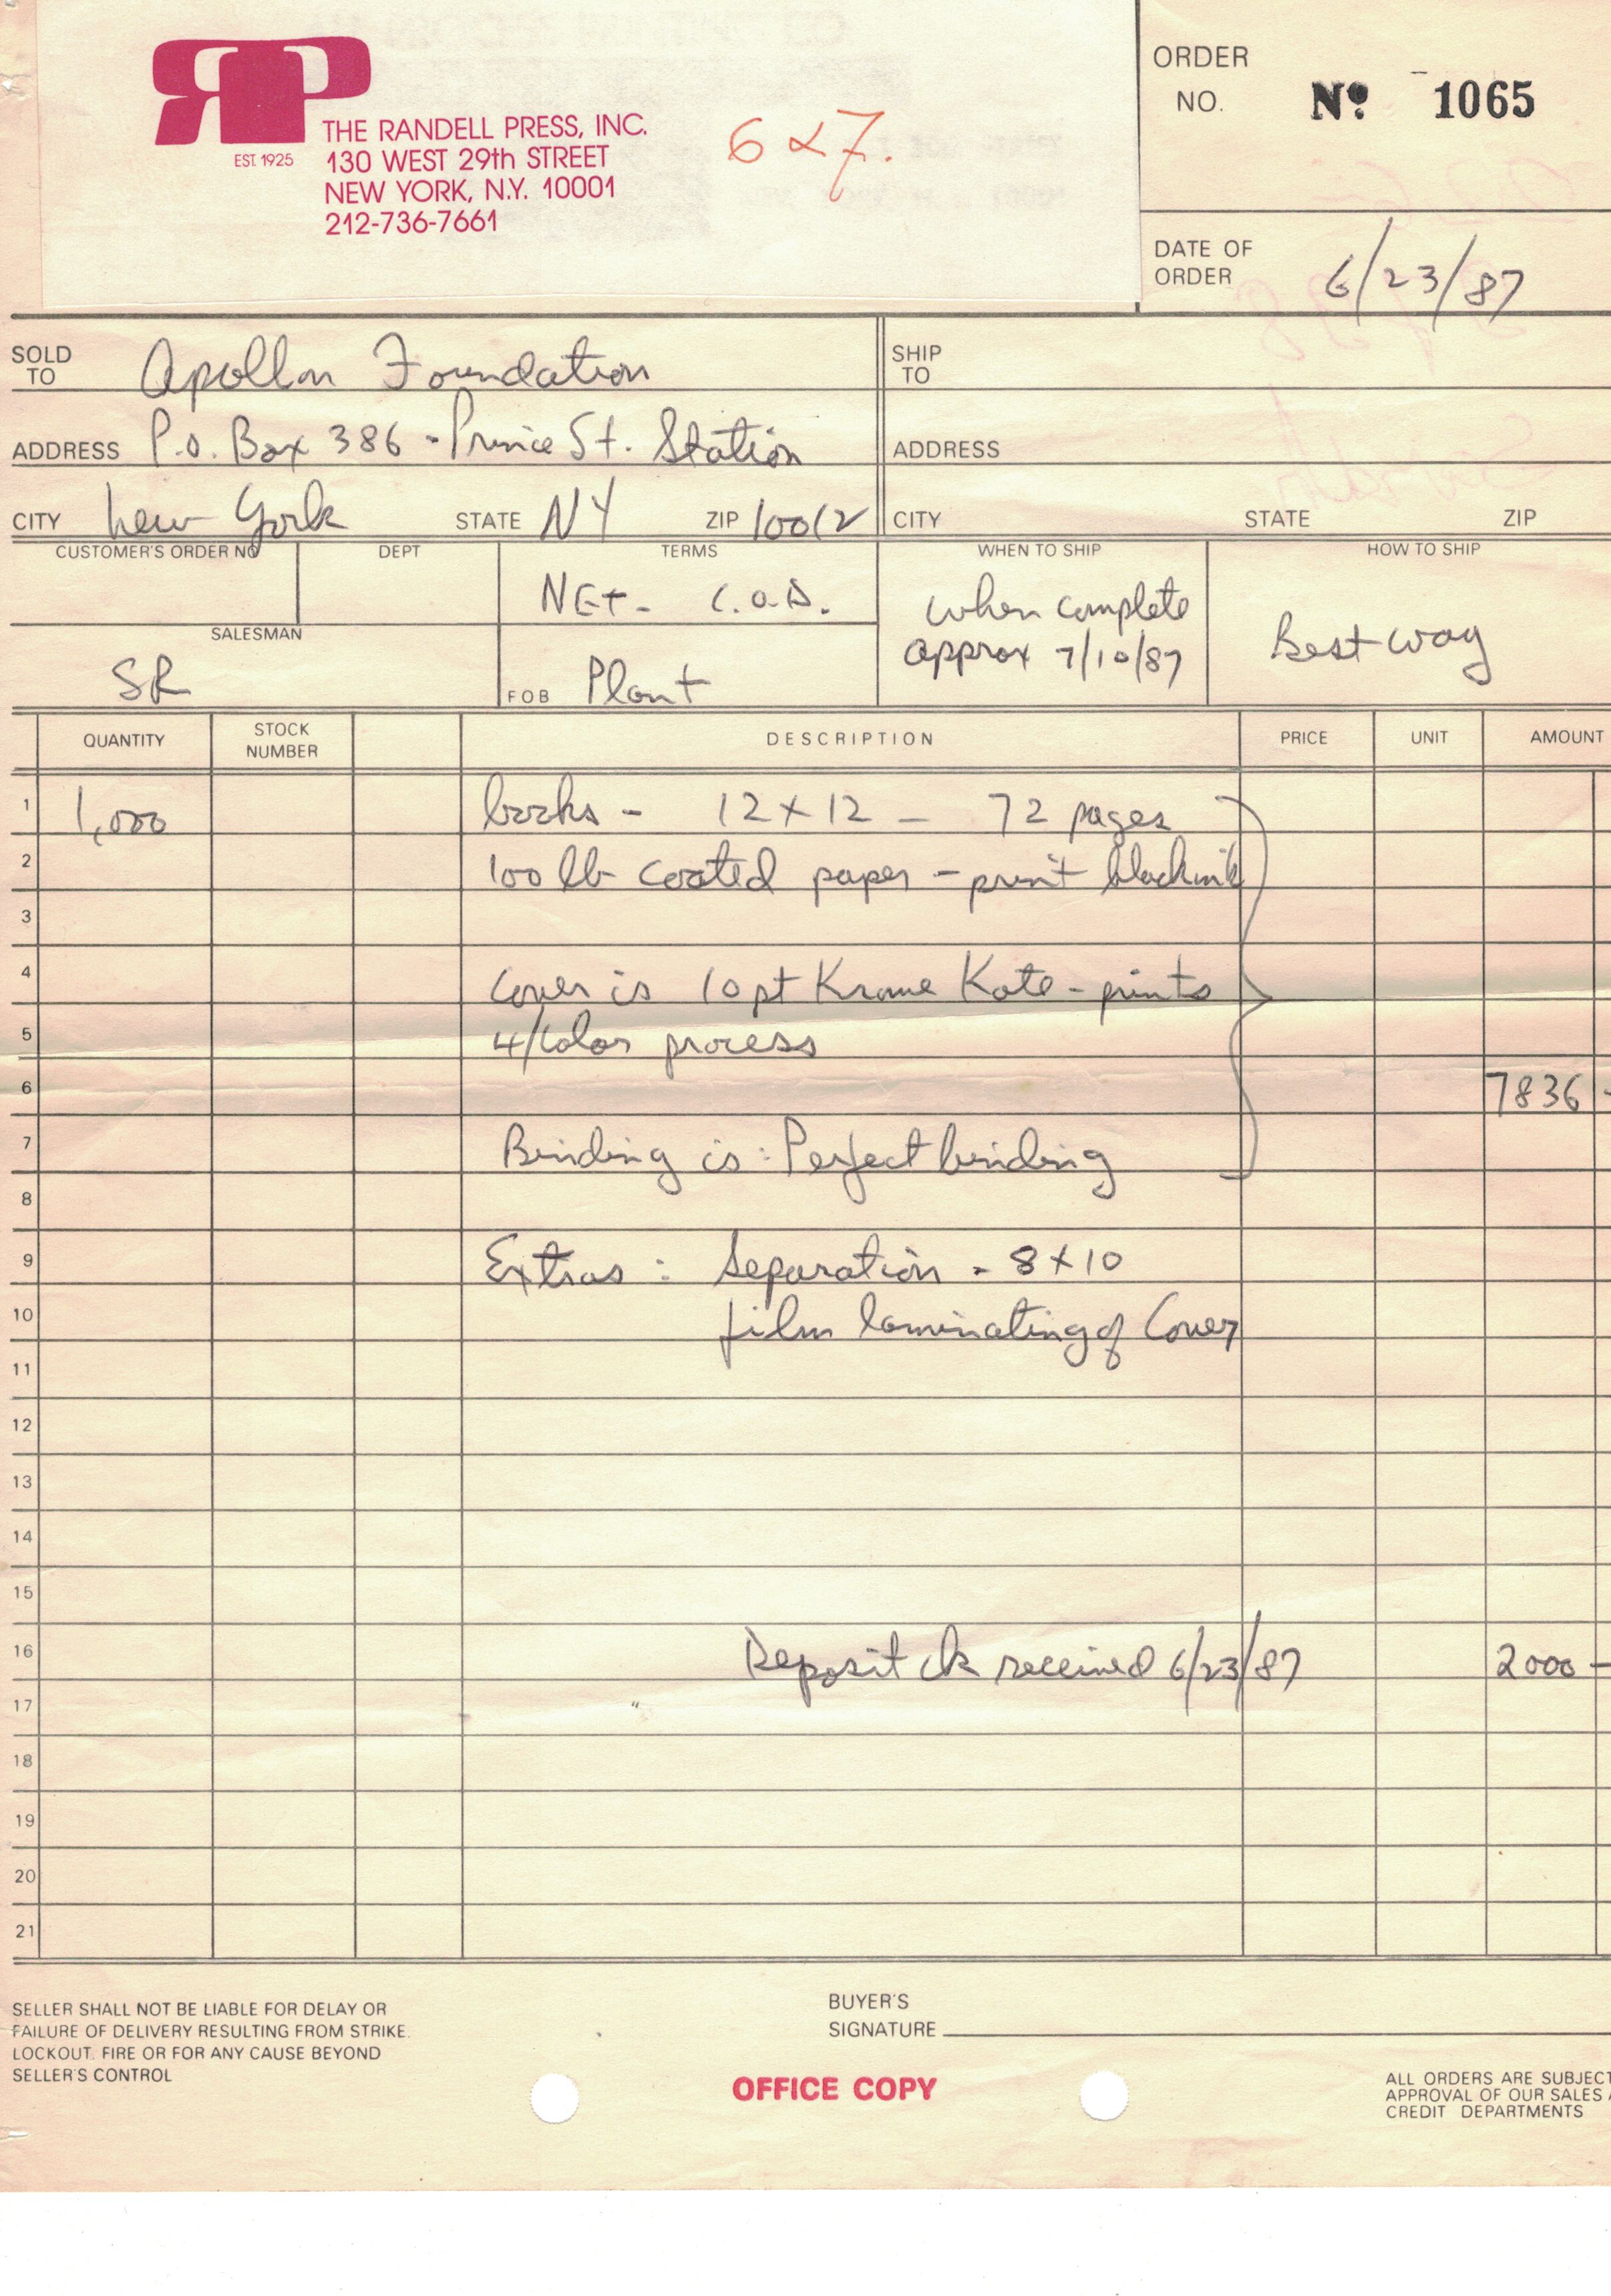 RP
EST. 1925
THE RANDELL PRESS, INC.
130 WEST 29th STREET
NEW YORK, N.Y. 10001
212-736-7661
6 & 7.
ORDER
NO. Nº 1065
DATE OF
ORDER 6/23/87
SOLD
TO Apollon Foundation
ADDRESS P.O. Box 386 - Prince St. Station
CITY New York STATE NY ZIP 10012
SHIP
TO
ADDRESS
CITY STATE ZIP
CUSTOMER'S ORDER NO DEPT TERMS WHEN TO SHIP HOW TO SHIP
NET - C.O.D.
when complete
approx 7/10/87
Best way
SALESMAN
SR
FOB Plant
QUANTITY STOCK NUMBER DESCRIPTION PRICE UNIT AMOUNT
1 1,000 books - 12 x 12 - 72 pages
2 100 lb coated paper - print black ink
3
4 Cover is 10 pt Krome Kote - prints
5 4/Color process
6 7836 -
7 Binding is : Perfect binding
8
9 Extras : Separation - 8 x 10
10 film laminating of Cover
11
12
13
14
15
16 Deposit ck received 6/23/87 2000 -
17
18
19
20
21
SELLER SHALL NOT BE LIABLE FOR DELAY OR
FAILURE OF DELIVERY RESULTING FROM STRIKE.
LOCKOUT. FIRE OR FOR ANY CAUSE BEYOND
SELLER'S CONTROL
BUYER'S
SIGNATURE
OFFICE COPY
ALL ORDERS ARE SUBJECT
APPROVAL OF OUR SALES
CREDIT DEPARTMENTS